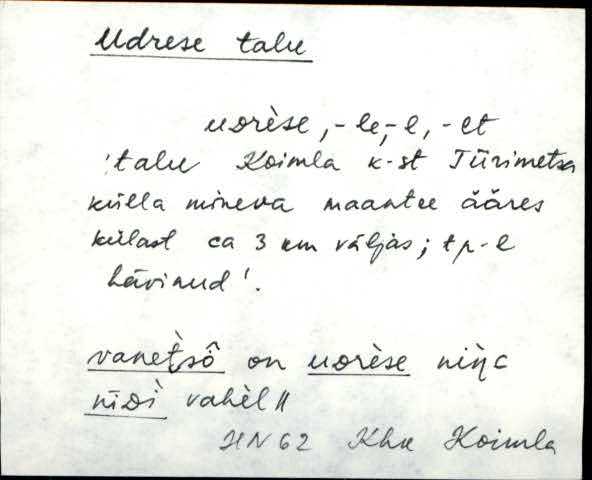 Udrese talu
uᴅrèse, -le, -l, -et
'talu Koimla k-st Türimetsa
külla mineva maantee ääres
külast ca 3 km väljas; tp-l
hävinud'.
vanet̀sô on uᴅrèse niŋ̀G
nīᴅì vahèl ||
HN 62 Khk Koimla